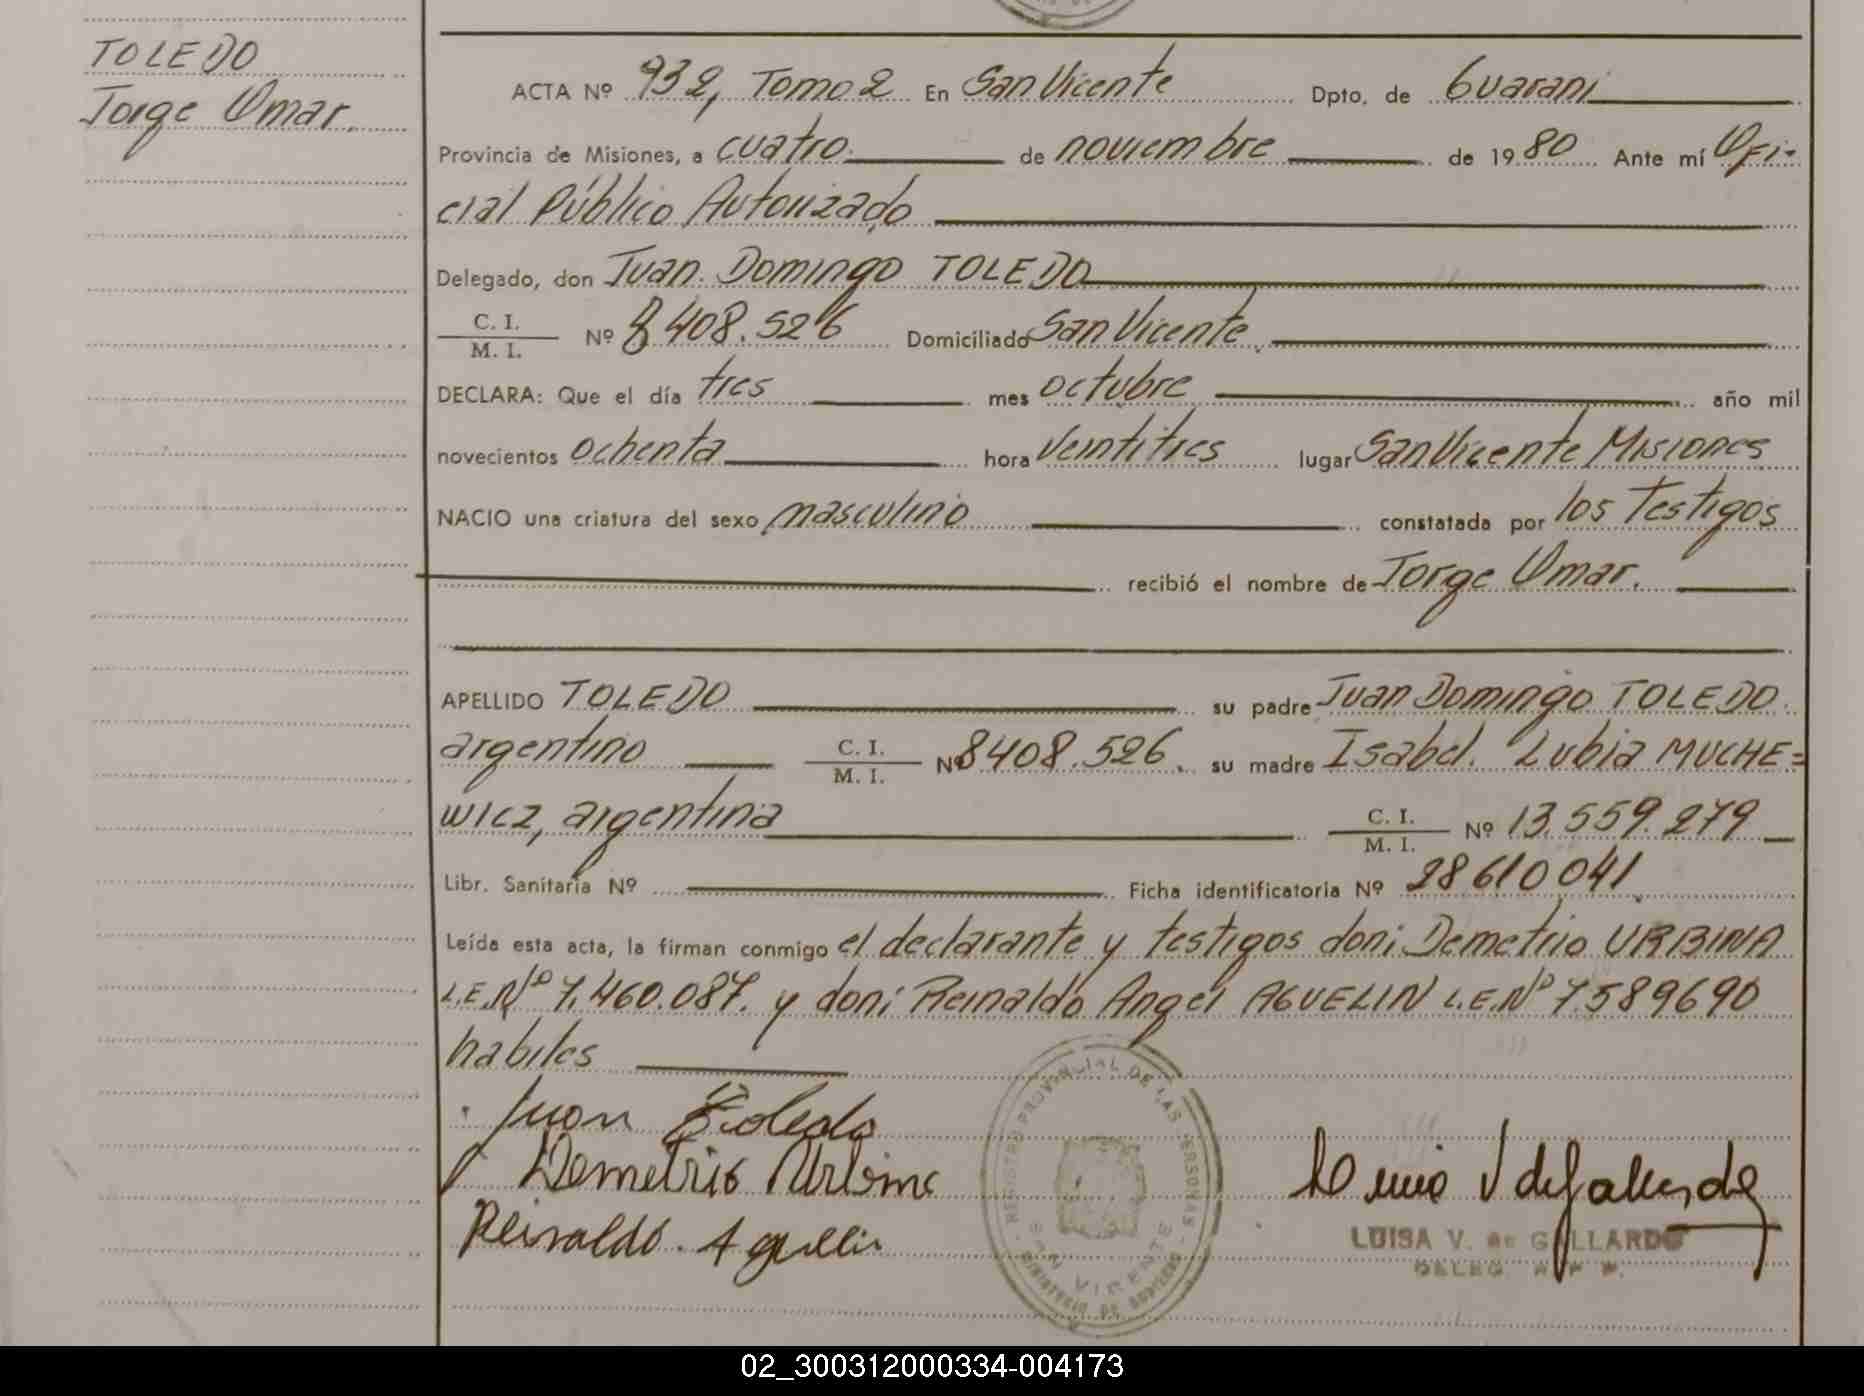 TOLEDO
Jorge Omar.
ACTA Nº 932, Tomo 2 En San Vicente Dpto. de Guarani
Provincia de Misiones, a cuatro de noviembre de 1980 Ante mí Ofi-
cial Público Autorizado
Delegado, don Juan Domingo TOLEDO
C. I.
M. I. Nº 8408.526 Domiciliado San Vicente
DECLARA: Que el día tres mes octubre año mil
novecientos ochenta hora veintitres lugar San Vicente Misiones
NACIO una criatura del sexo masculino constatada por los Testigos
recibió el nombre de Jorge Omar.
APELLIDO TOLEDO su padre Juan Domingo TOLEDO.
argentino C. I. M. I. Nº 8408.526. su madre Isabel Lubia MUCHE=
wicz, argentina C. I. M. I. Nº 13.559.279
Libr. Sanitaria Nº Ficha identificatoria Nº 28610041
Leída esta acta, la firman conmigo el declarante y testigos don: Demetrio URBINA
L.E.Nº 7.460.087. y don: Reinaldo Angel AGUELIN L.E.Nº 7.589690
habiles
Juan Toledo
Demetrio Urbina
Reinaldo Aguelin
REGISTRO PROVINCIAL DE LAS PERSONAS
SAN VICENTE
MINISTERIO DE GOBIERNO
LUISA V. de GALLARDO
DELEG. R. P. P.
02_300312000334-004173